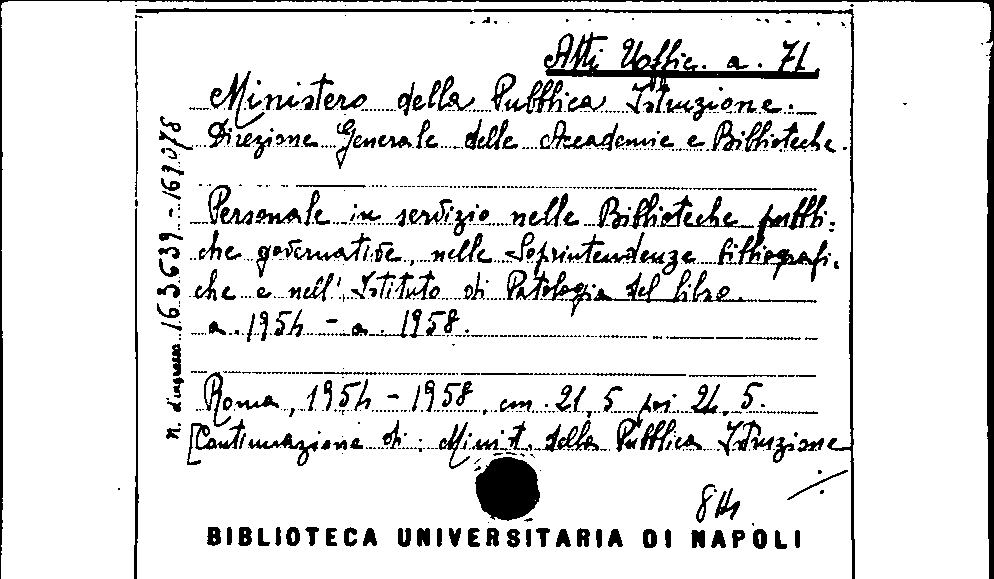 Atti Uffic. a. 71
Ministero della Pubblica Istruzione.
Direzione Generale delle Accademie e Biblioteche.
Personale in servizio nelle Biblioteche pubbli-
che governative, nelle Soprintendenze bibliografi-
che e nell'Istituto di Patologia del libro.
a. 1954 - a. 1958.
Roma, 1954 - 1958, cm. 21,5 poi 24,5.
[Continuazione di: Minist. della Pubblica Istruzione
n. d'ingresso 163.639 - 167.078
BIBLIOTECA UNIVERSITARIA DI NAPOLI